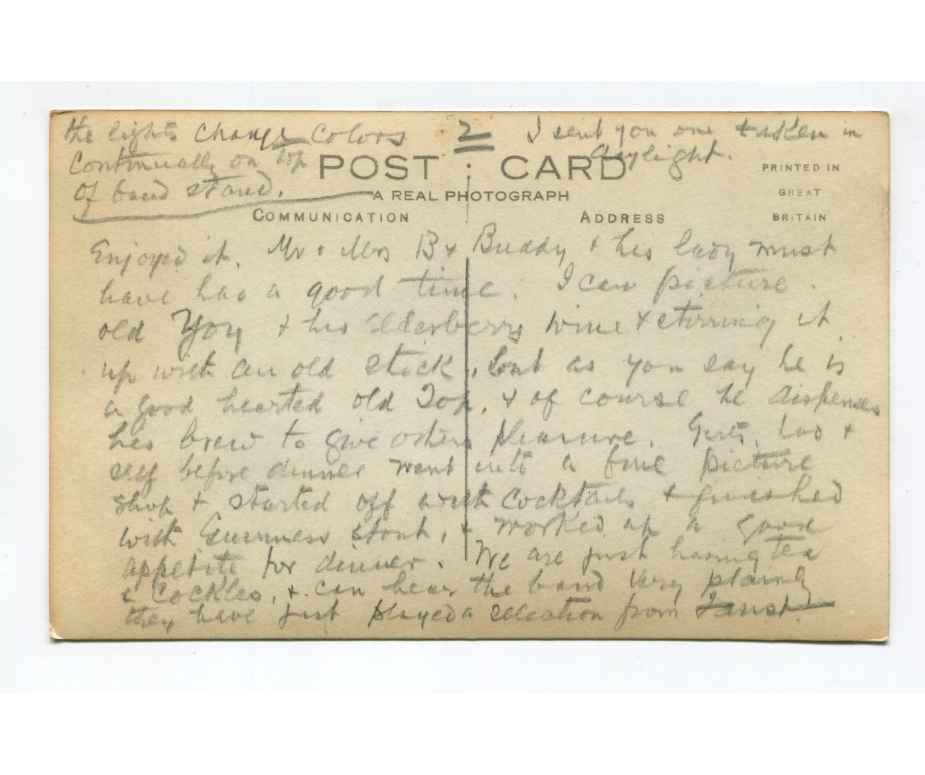 the lights change colors
continually on top
of band stand.
2
I sent you one taken in
daylight.
POST CARD
A REAL PHOTOGRAPH
PRINTED IN
GREAT
BRITAIN
COMMUNICATION
ADDRESS
Enjoyed it. Mr & Mrs B & Buddy & his lady must
have had a good time. I can picture
old & his Elderberry wine & stirring it
up with an old stick, but as you say he is
a good hearted old Top, & of course he dispenses
his brew to give others pleasure. &
self before dinner went into a fine picture
shop & started off with cocktails & finished
with Guinness stout, & worked up a good
appetite for dinner. We are just having tea
& cockles, & can hear the band very plainly
they have just played a selection from Faust.